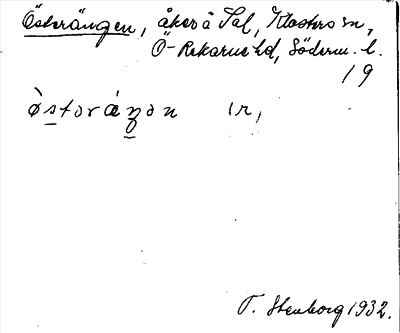 Österängen, åker å Sal, Klosters sn,
Ö-Rekarne hd, Söderm. l.
19
òstoráŋon ır,
T. Stenborg 1932.